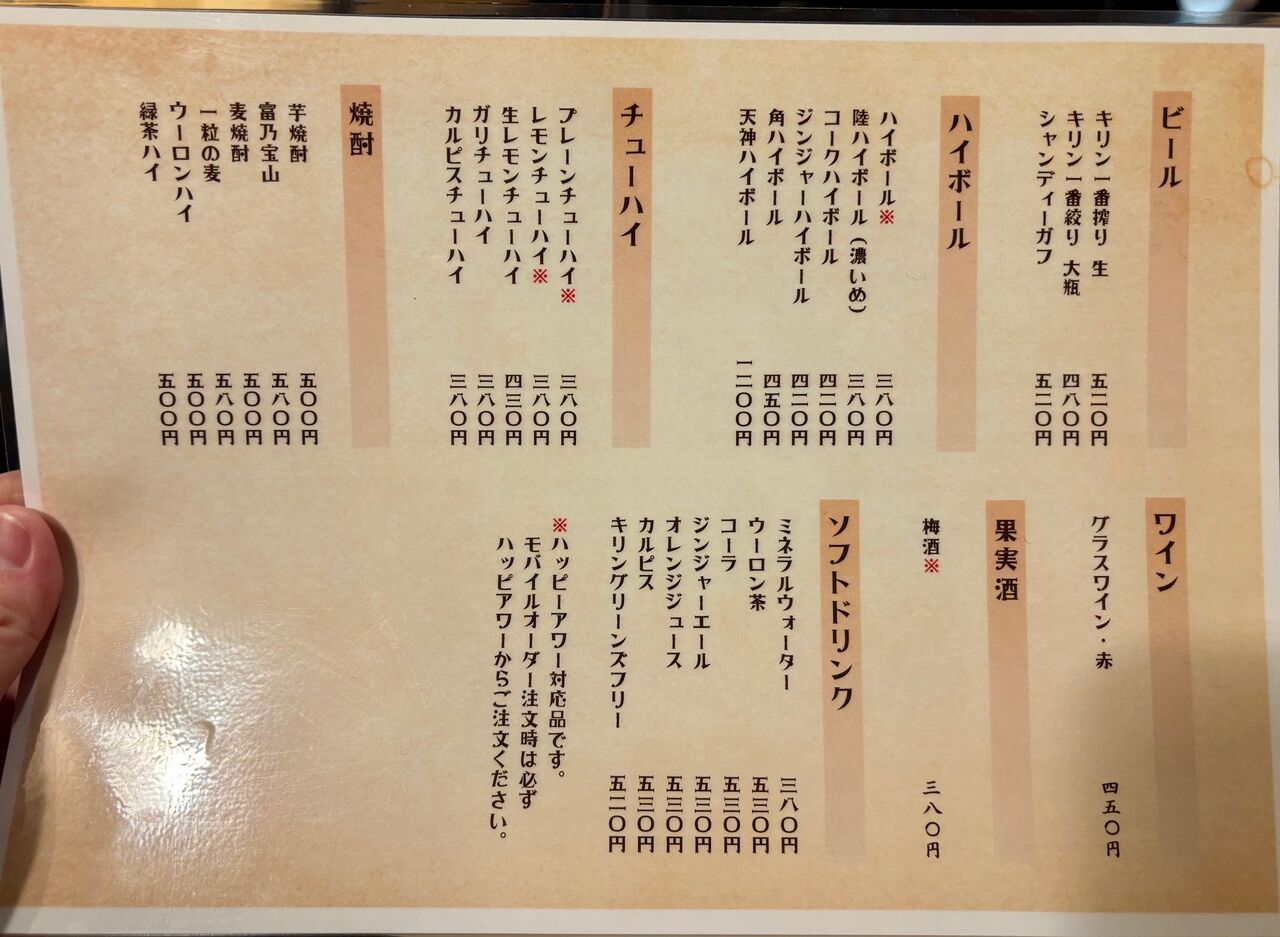 ビール
キリン一番搾り 生 五二〇円
キリン一番絞り 大瓶 四八〇円
シャンディーガフ 五二〇円
ハイボール
ハイボール※ 三八〇円
陸ハイボール(濃いめ) 三八〇円
コークハイボール 四二〇円
ジンジャーハイボール 四二〇円
角ハイボール 四五〇円
天神ハイボール 一二〇〇円
チューハイ
プレーンチューハイ※ 三八〇円
レモンチューハイ※ 三八〇円
生レモンチューハイ 四三〇円
ガリチューハイ 三八〇円
カルピスチューハイ 三八〇円
焼酎
芋焼酎 五〇〇円
富乃宝山 五八〇円
麦焼酎 五〇〇円
一粒の麦 五八〇円
ウーロンハイ 五〇〇円
緑茶ハイ 五〇〇円
ワイン
グラスワイン・赤 四五〇円
果実酒
梅酒※ 三八〇円
ソフトドリンク
ミネラルウォーター 三八〇円
ウーロン茶 五三〇円
コーラ 五三〇円
ジンジャーエール 五三〇円
オレンジジュース 五三〇円
カルピス 五三〇円
キリングリーンズフリー 五二〇円
※ハッピーアワー対応品です。
モバイルオーダー注文時は必ず
ハッピアワーからご注文ください。